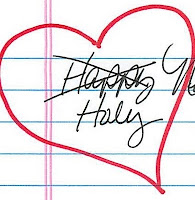 Happy
Holy